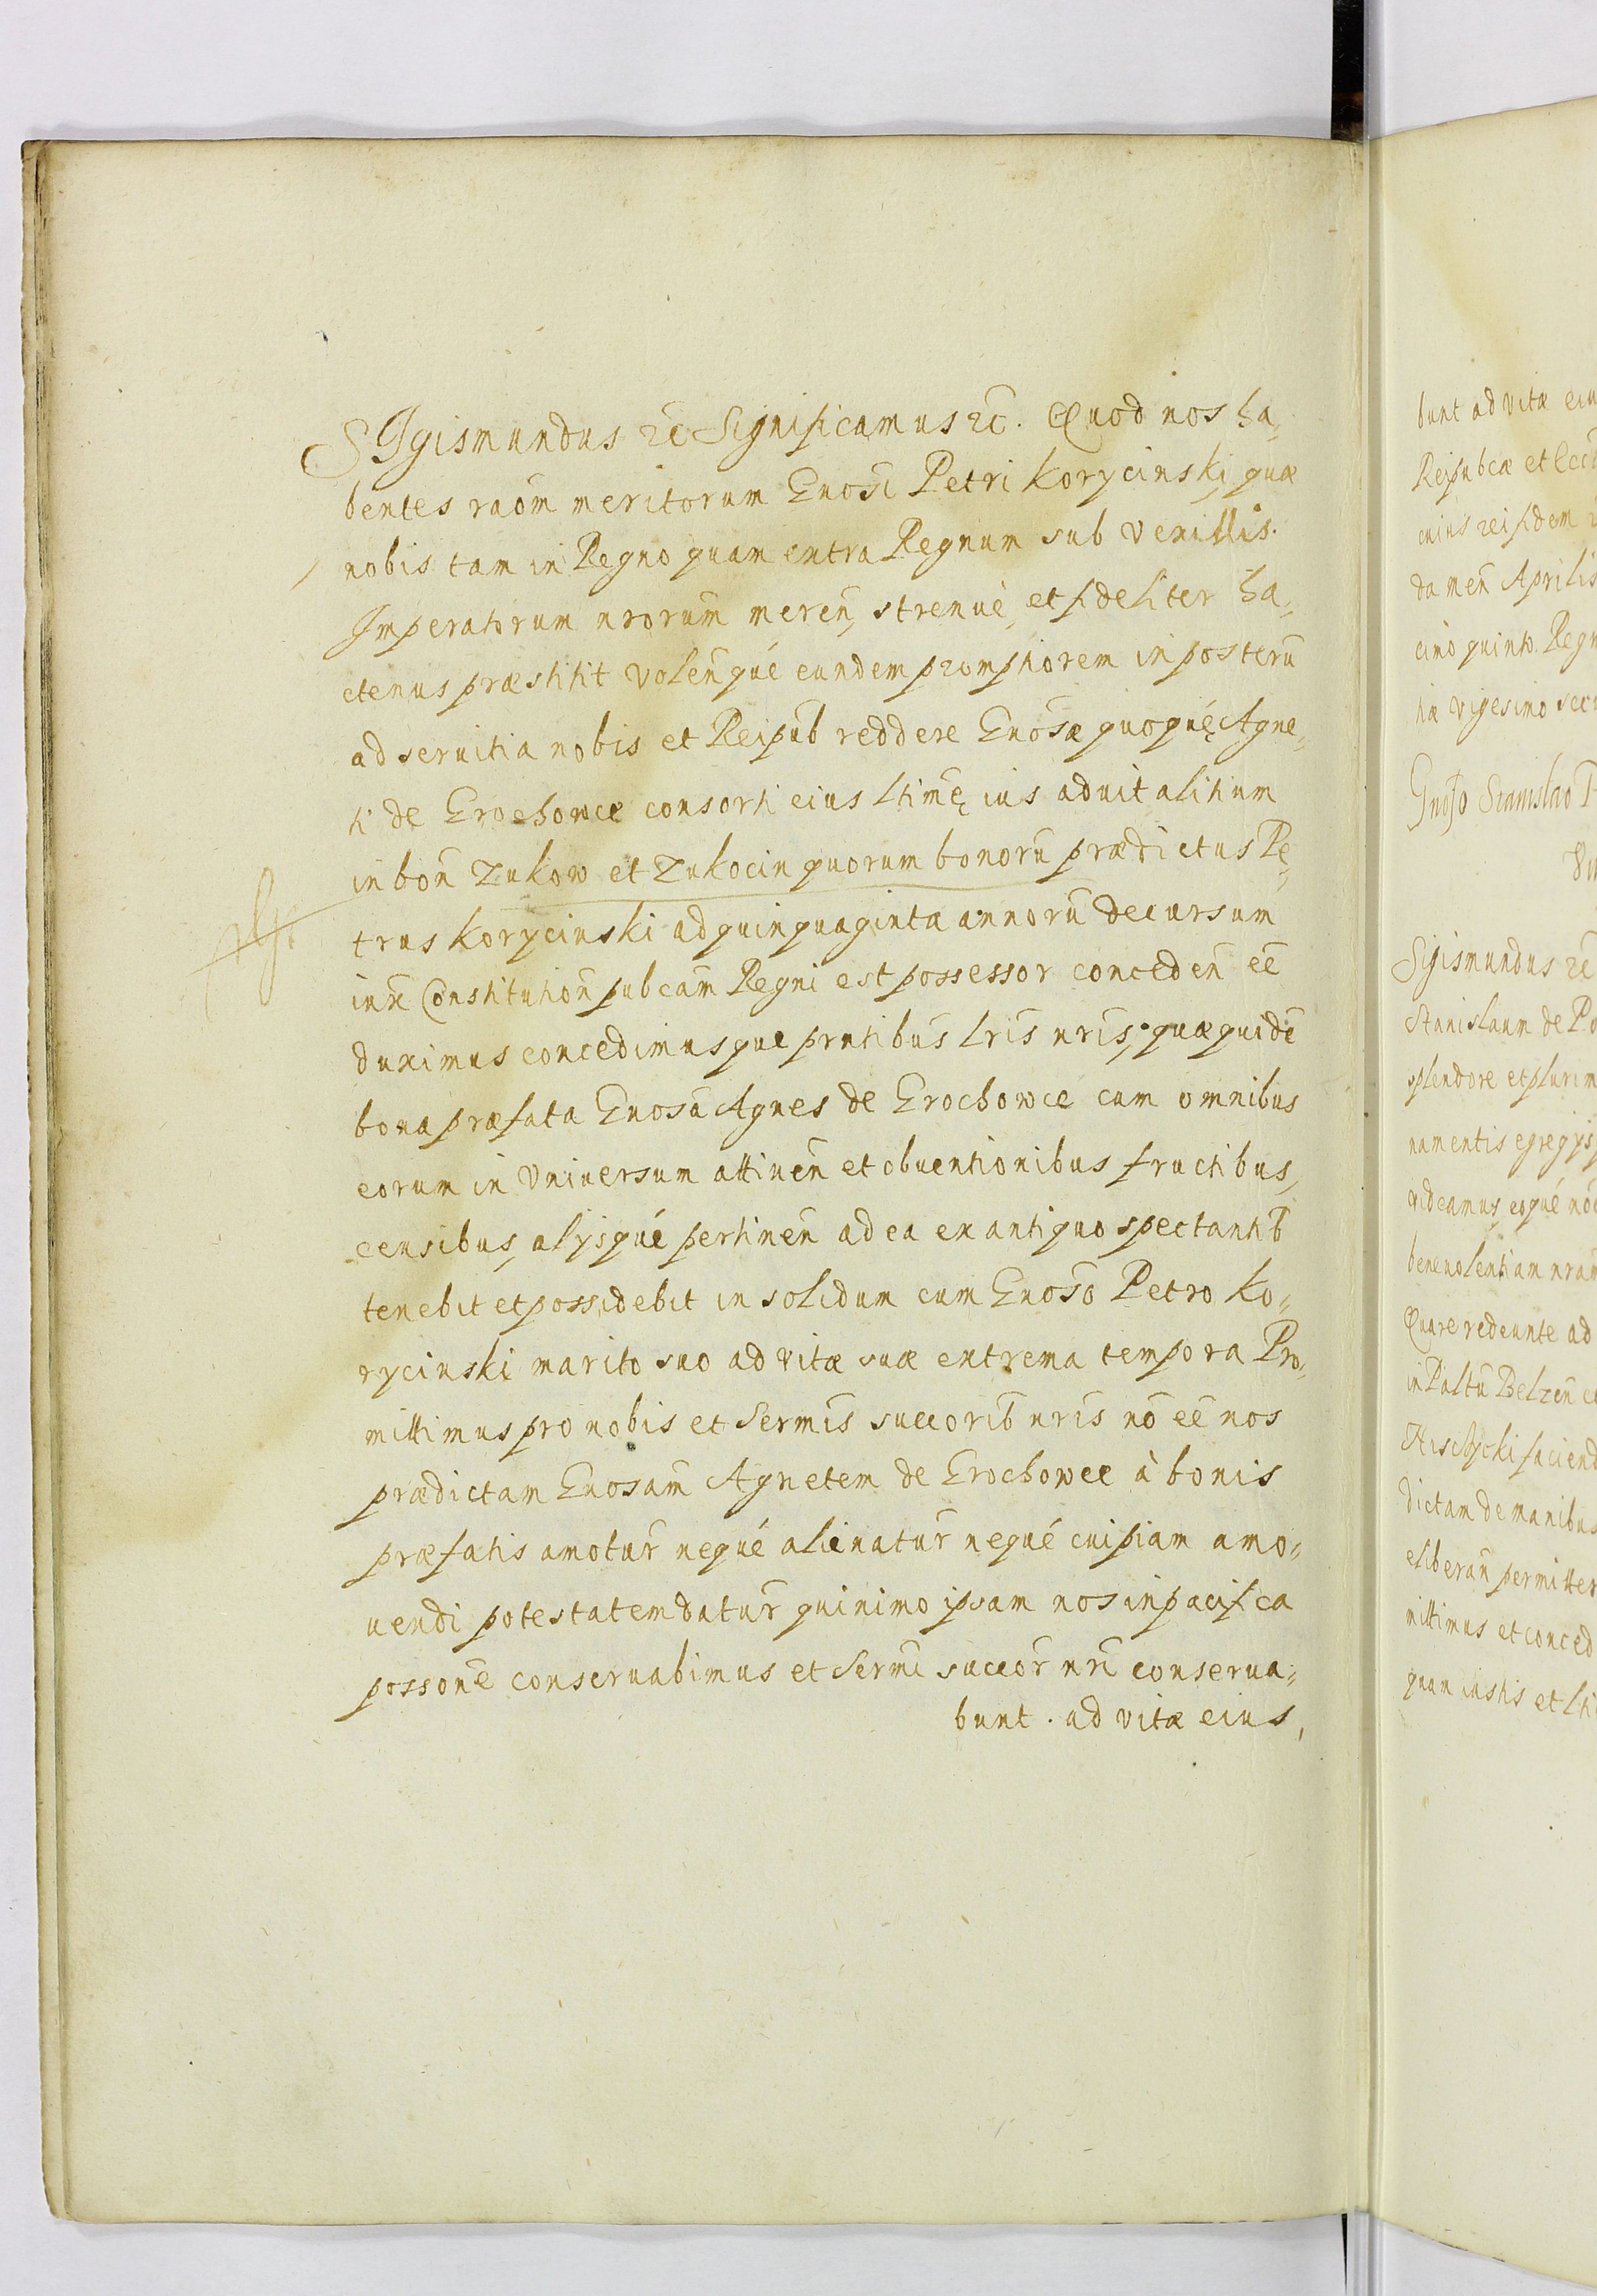 SIgismundus rc̃ Significamus rc̃. Quod nos ha„
bentes raõm meritorum Gnosi Petri Korycinski, quæ
nobis tam in Regno quam extra Regnum sub Vexillis.
Imperatorum nrorum meren̄, strenuè, et fideliter ha„
ctenus præstitit Volen̄qué eundem promptiorem in posterū
ad seruitia nobis et Reipub̄ reddere Gnosæ quoqué Agne„
ti de Grochowce consorti eius Ltimę ius aduitalitium
in bon̄ Zukow et Zukocin quorum bonorū prædictus Pe„
trus Korycinski ad quinquaginta annorū decursum
iux̄ Constitution̄ pubcam̄ Regni est possessor conceden̄ eē
duximus concedimusque pn̄tibus Lris nris, quæquidē
bona præfata Gnosa Agnes de Grochowce cum omnibus
eorum in Vniuersum attinen̄ et obuentionibus fructibus,
censibus, alijsqué pertinen̄ ad ea ex antiquo spectantib̄
tenebit et possidebit in solidum cum Gnoso Petro Ko„
rycinski marito suo ad vitæ suæ extrema tempora Pro„
mittimus pro nobis et Sermis succorib̄ nris nō eē nos
prædictam Gnosam Agnetem de Grochowce à bonis
præfatis amotur̄ nequé alienatur̄ nequé cuipiam amo„
uendi potestatem datur̄ quinimo ipsam nos in pacifica
possone conseruabimus et Sermi succor̄ nri conserua„
bunt . ad vitæ eius,
bunt ad vitæ eiu
Reipubcæ et
cuius rei fidem
da men̄ Aprilis
cimo quinto. Regn
tiæ vigesimo
Gnoso Stanislao
Sigismundus rc̃
Stanislaum de Po
splendore et plurim
namentis egregijs
videamus, eoqué
beneuolentiam nram
Quare redeunte ad
in Paltū Belzen̄
faciend
dictam de manibus
eliberan̄ permitter
mittimus et conced
quam iustis et